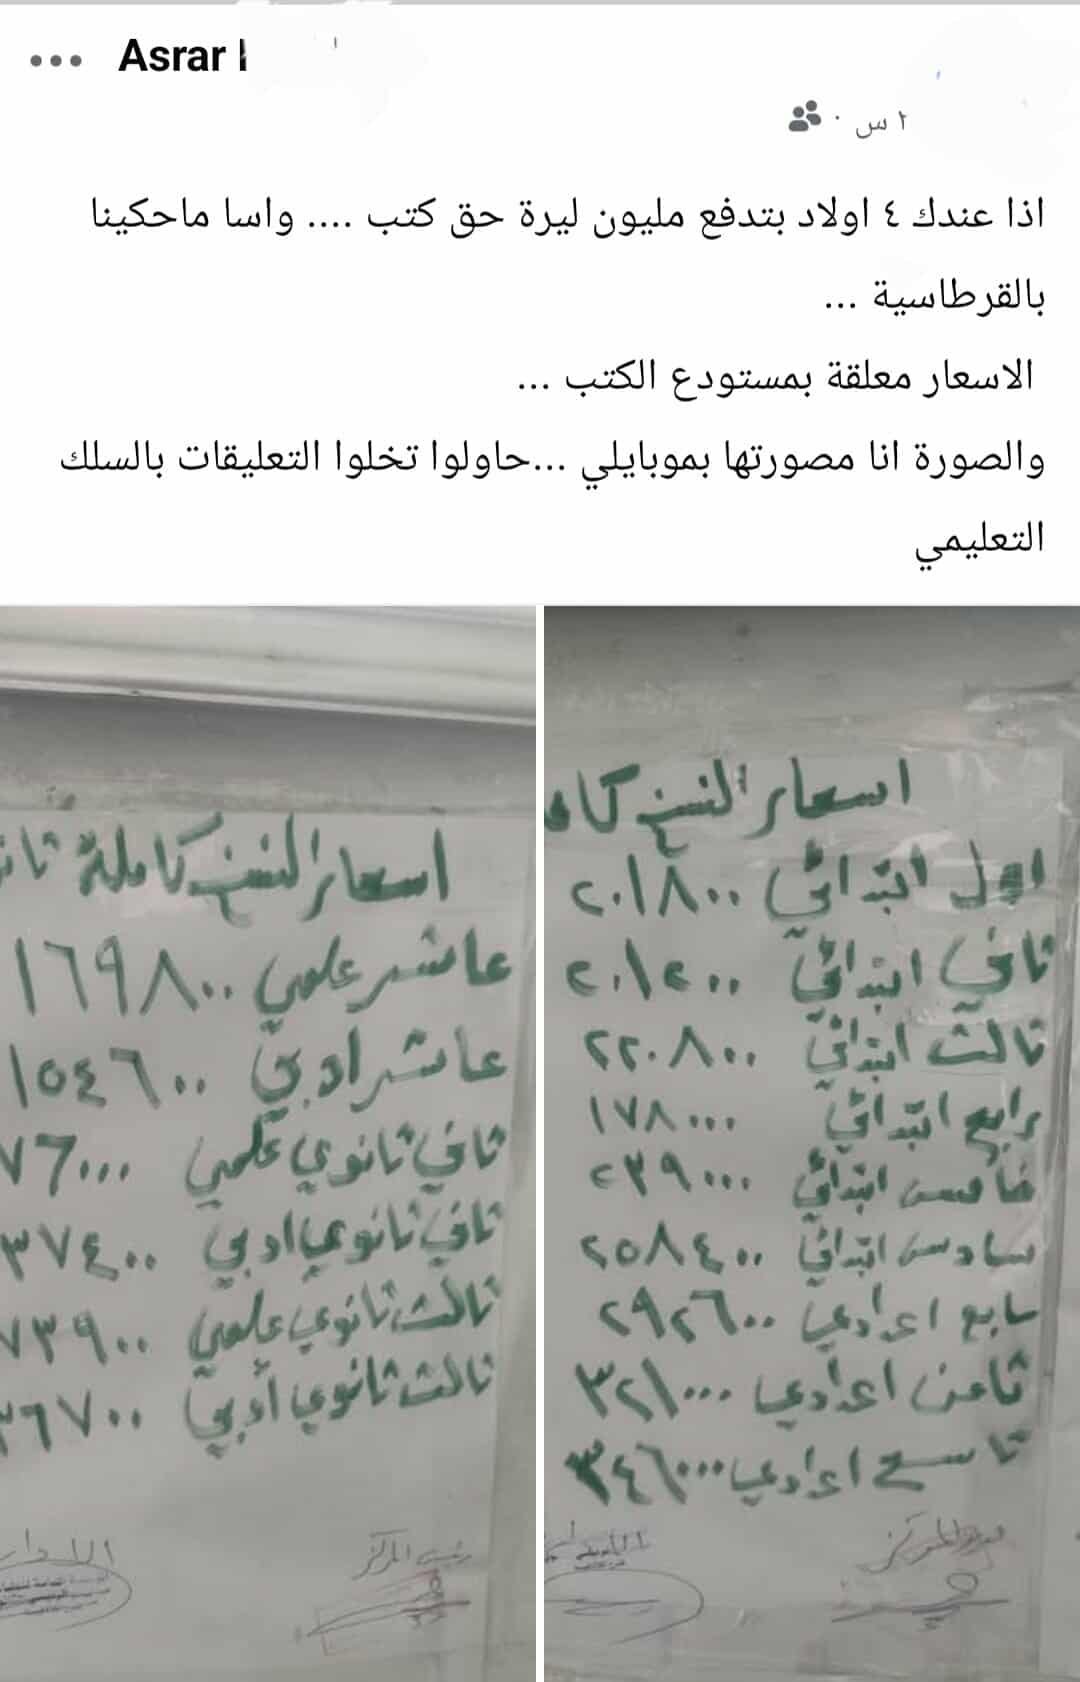 Asrar
٢ س ·
اذا عندك ٤ اولاد بتدفع مليون ليرة حق كتب .... واسا ماحكينا
بالقرطاسية ...
الاسعار معلقة بمستودع الكتب ...
والصورة انا مصورتها بموبايلي ...حاولوا تخلوا التعليقات بالسلك
التعليمي
اسعار النسخ
اول ابتدائي ٢٠١٨٠٠
ثاني ابتدائي ٢٠١٢٠٠
ثالث ابتدائي ٢٢٠٨٠٠
رابع ابتدائي ١٧٨٠٠٠
خامس ابتدائي ٢٣٩٠٠٠
سادس ابتدائي ٢٥٨٤٠٠
سابع اعدادي ٢٩٢٦٠٠
ثامن اعدادي ٣٢١٠٠٠
تاسع اعدادي ٣٤٦٠٠٠
اسعار النسخ كاملة
عاشر علمي ١٦٩٨٠٠
عاشر ادبي ١٥٤٦٠٠
ثاني ثانوي علمي ٧٦٠٠٠
ثاني ثانوي ادبي ٣٧٤٠٠
ثالث ثانوي علمي ٧٣٩٠٠
ثالث ثانوي أدبي ٣٦٧٠٠
رئيس المركز